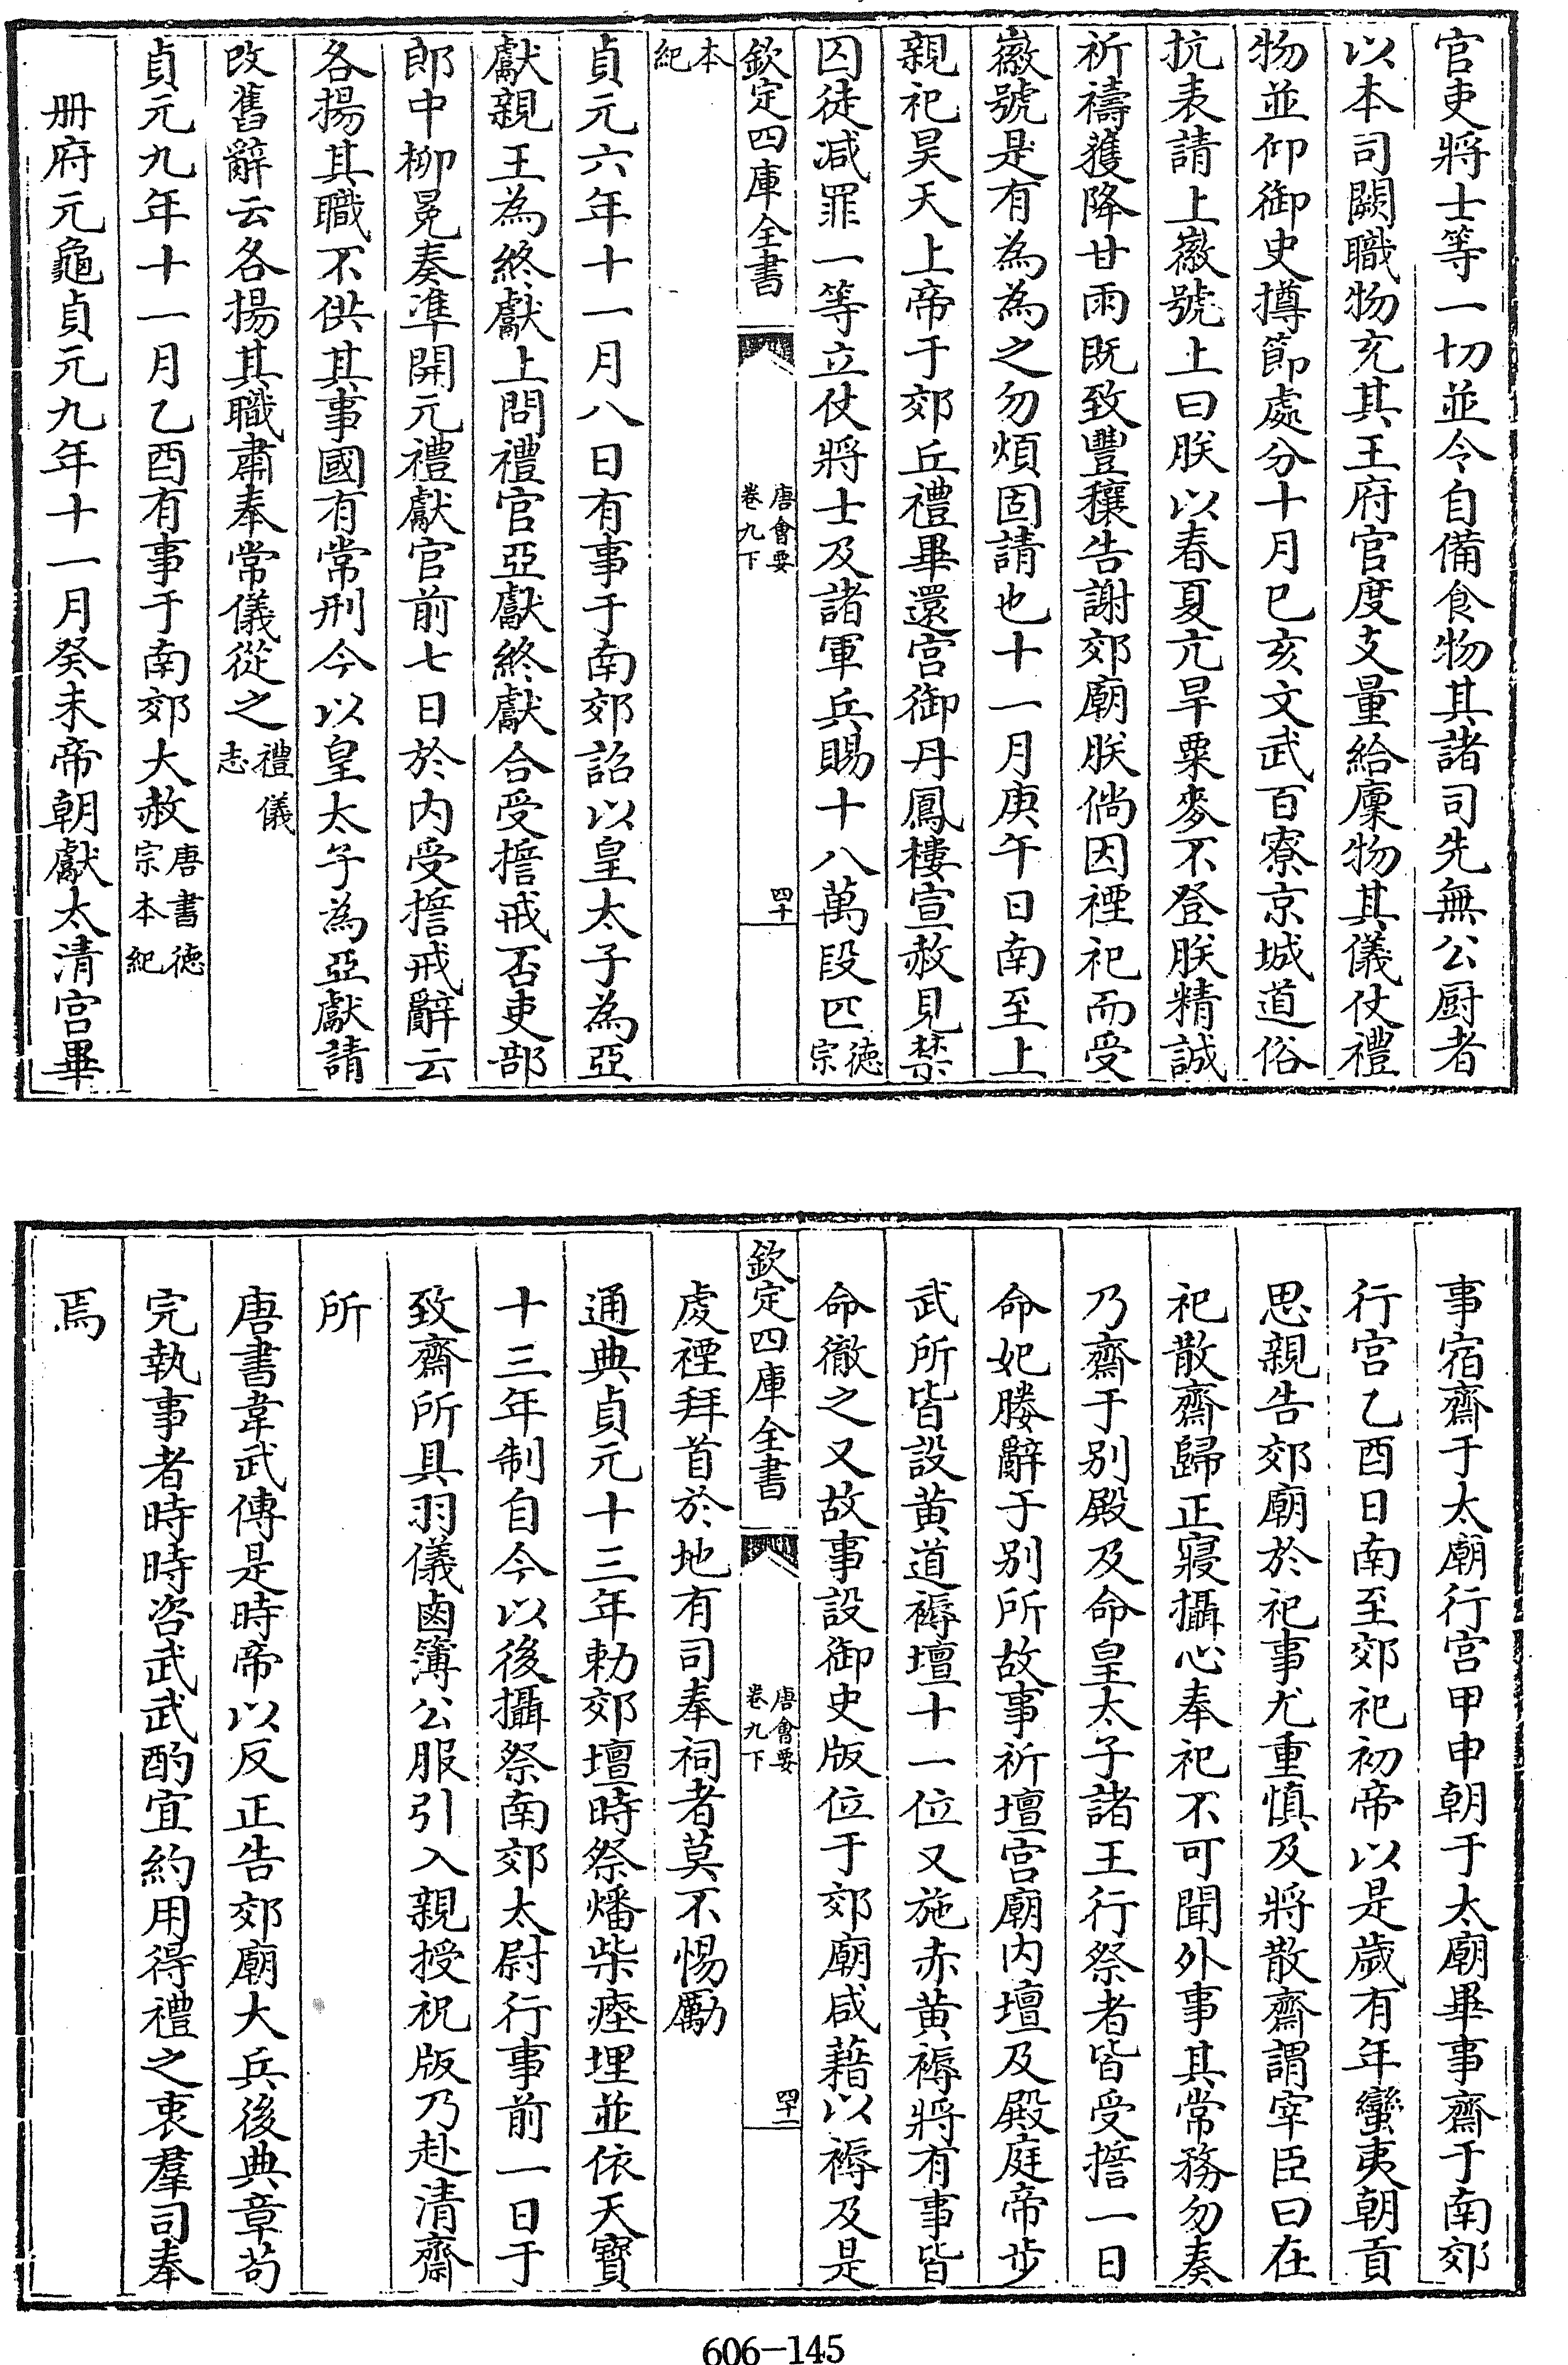 官吏將士等一切並令自備食物其諸司先無公厨者
以本司闕職物充其王府官度支量給廩物其儀仗禮
物並仰御史撙節處分十月己亥文武百寮京城道俗
抗表請上徽號上曰朕以春夏亢旱粟麥不登朕精誠
祈禱獲降甘雨既致豐穰告謝郊廟朕倘因禋祀而受
徽號是有為為之勿煩固請也十一月庚午日南至上
親祀昊天上帝于郊丘禮畢還宫御丹鳳樓宣赦見禁
囚徒减罪一等立仗將士及諸軍兵賜十八萬段匹德宗
欽定四庫全書 唐會要卷九下 四十
本紀
貞元六年十一月八日有事于南郊詔以皇太子為亞
獻親王為終獻上問禮官亞獻終獻合受誓戒否吏部
郎中柳冕奏凖開元禮獻官前七日於内受誓戒辭云
各揚其職不供其事國有常刑今以皇太子為亞獻請
改舊辭云各揚其職肅奉常儀從之禮儀志
貞元九年十一月乙酉有事于南郊大赦唐書德宗本紀
册府元龜貞元九年十一月癸未帝朝獻太清宫畢
事宿齋于太廟行宫甲申朝于太廟畢事齋于南郊
行宫乙酉日南至郊祀初帝以是歲有年蠻夷朝貢
思親告郊廟於祀事尤重慎及將散齋謂宰臣曰在
祀散齋歸正寢攝心奉祀不可聞外事其常務勿奏
乃齋于别殿及命皇太子諸王行祭者皆受誓一日
命妃媵辭于别所故事祈壇宫廟内壇及殿庭帝步
武所皆設黄道褥壇十一位又施赤黄褥將有事皆
命徹之又故事設御史版位于郊廟咸藉以褥及是
欽定四庫全書 唐會要卷九下 四十一
虔禋拜首於地有司奉祠者莫不惕勵
通典貞元十三年勅郊壇時祭燔柴瘞埋並依天寶
十三年制自今以後攝祭南郊太尉行事前一日于
致齋所具羽儀鹵簿公服引入親授祝版乃赴清齋
所
唐書韋武傳是時帝以反正告郊廟大兵後典章苟
完執事者時時咨武武酌宜約用得禮之衷羣司奉
焉
606-145